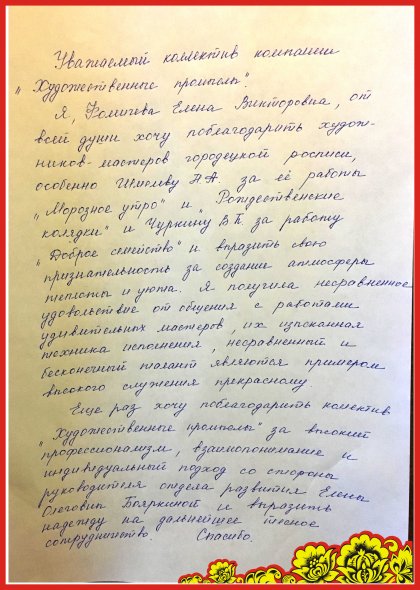 Уважаемый коллектив компании
„Художественные промыслы".
Я, Фомичева Елена Викторовна, от
всей души хочу поблагодарить худож-
ников-мастеров городецкой росписи,
особенно А.А. за её работы
„Морозное утро" и „Рождественские
колядки" и Чуркину В.Б. за работу
„Доброе семейство" и выразить свою
признательность за создании атмосферы
теплоты и уюта. Я получила несравненное
удовольствие от общения с работами
удивительных мастеров, их изысканная
техника исполнения, несравненный и
бесконечный талант являются примером
высокого служения прекрасному.
Еще раз хочу поблагодарить коллектив
„Художественные промыслы" за высокий
профессионализм, взаимопонимание и
индивидуальный подход со стороны
руководителя отдела развития Елены
Олеговны Бояркиной и выразить
надежду на дальнейшее тесное
сотрудничество. Спасибо.